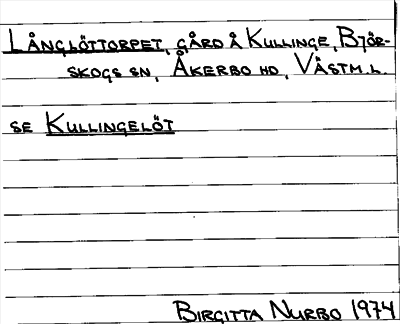 LÅNGLÖTTORPET, GÅRD Å KULLINGE, BJÖR-
SKOGS SN, ÅKERBO HD, VÄSTM.L.
SE KULLINGELÖT
BIRGITTA NURBO 1974